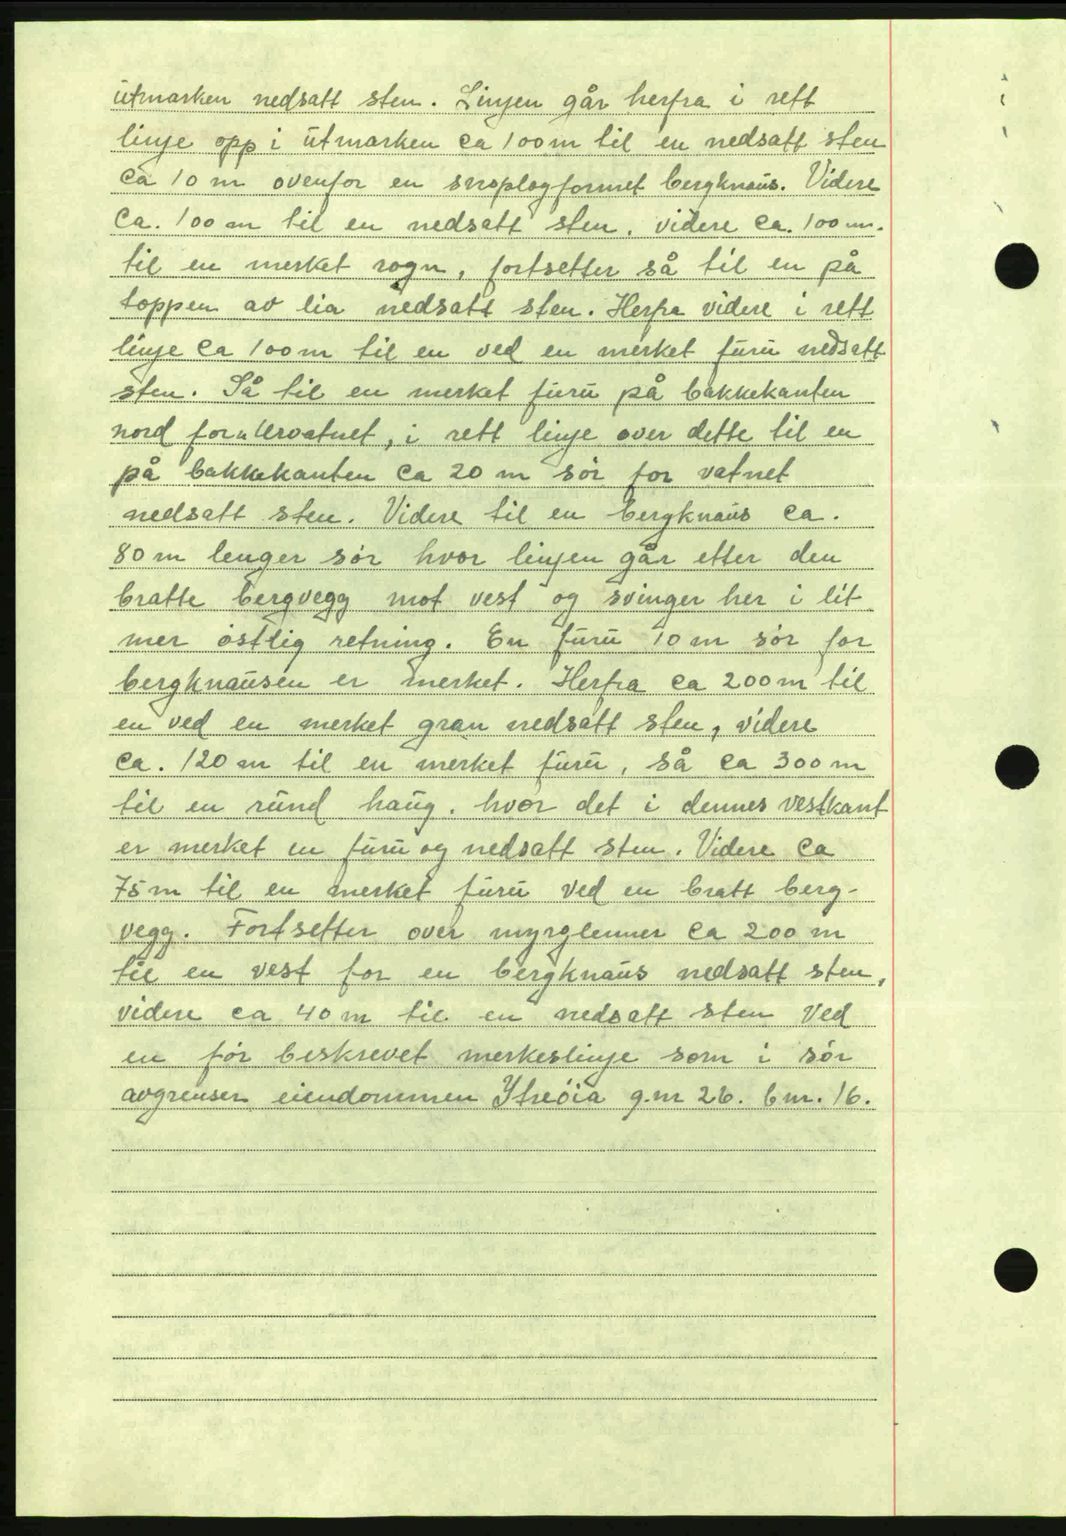 utmarken nedsatt sten. Linjen går herfra i rett
linje opp i utmarken ca 100 m til en nedsatt sten
ca 10 m ovenfor en snøplogformet bergknaus. Videre
ca. 100 m til en nedsatt sten, videre ca. 100 m.
til en merket rogn, fortsetter så til en på
toppen av lia nedsatt sten. Herfra videre i rett
linje ca 100 m til en ved en merket furu nedsatt
sten. Så til en merket furu på bakkekanten
nord for urvatnet, i rett linje over dette til en
på bakkekanten ca 20 m sør for vatnet
nedsatt sten. Videre til en bergknaus ca.
80 m lenger sør hvor linjen går etter den
bratte bergvegg mot vest og svinger her i lit
mer østlig retning. En furu 10 m sør for
bergknausen er merket. Herfra ca 200 m til
en ved en merket gran nedsatt sten, videre
ca. 120 m til en merket furu, så ca 300 m
til en rund haug. hvor det i dennes vestkant
er merket en furu og nedsatt sten. Videre ca
75 m til en merket furu ved en bratt berg-
vegg. Fortsetter over myrglenner ca 200 m
til en vest for en bergknaus nedsatt sten,
videre ca 40 m til en nedsatt sten ved
en før beskrevet merkeslinje som i sør
avgrenser eiendommen Ytreøia g.nr 26. bnr. 16.